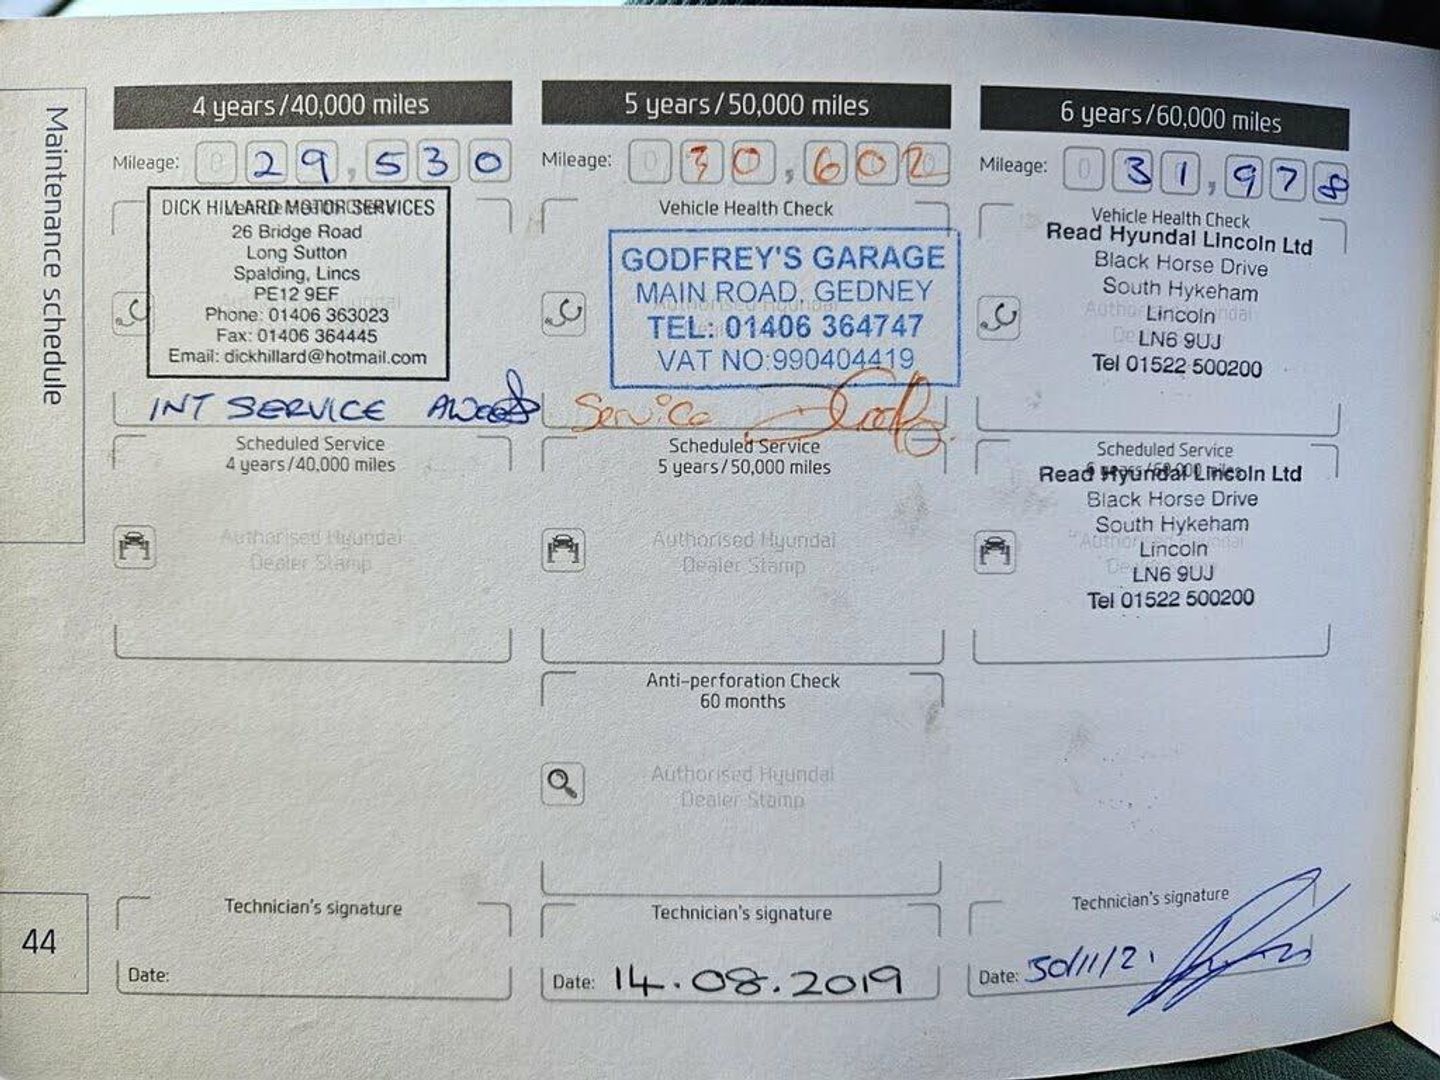 Maintenance schedule
44
4 years/40,000 miles
Mileage: 0 29,530
DICK HILLARD MOTOR SERVICES
26 Bridge Road
Long Sutton
Spalding, Lincs
PE12 9EF
Phone: 01406 363023
Fax: 01406 364445
Email: dickhillard@hotmail.com
INT SERVICE
Scheduled Service
4 years/40,000 miles
Authorised Hyundai
Dealer Stamp
Technician's signature
Date:
5 years/50,000 miles
Mileage: 0 30,602
Vehicle Health Check
GODFREY'S GARAGE
MAIN ROAD, GEDNEY
TEL: 01406 364747
VAT NO:990404419
Service
Scheduled Service
5 years/50,000 miles
Authorised Hyundai
Dealer Stamp
Anti-perforation Check
60 months
Authorised Hyundai
Dealer Stamp
Technician's signature
Date: 14.08.2019
6 years/60,000 miles
Mileage: 0 31,978
Vehicle Health Check
Read Hyundai Lincoln Ltd
Black Horse Drive
South Hykeham
Lincoln
LN6 9UJ
Tel 01522 500200
Scheduled Service
6 years/60,000 miles
Read Hyundai Lincoln Ltd
Black Horse Drive
South Hykeham
Lincoln
LN6 9UJ
Tel 01522 500200
Technician's signature
Date: 30/11/21